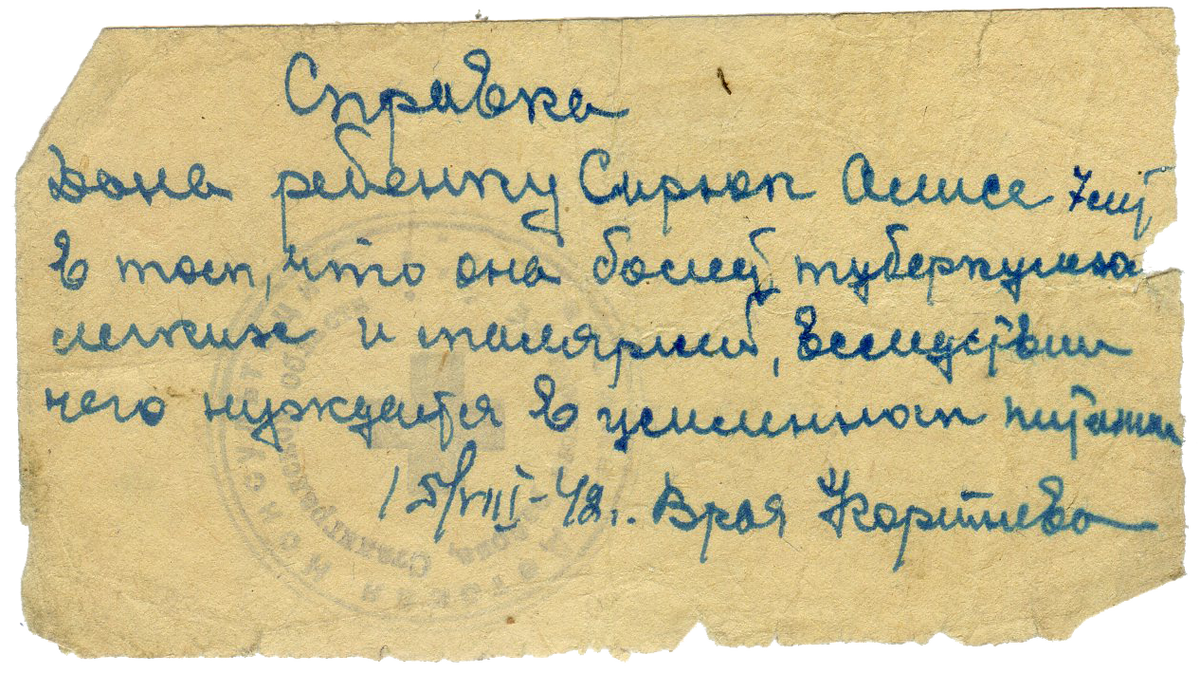 Справка
Дана ребенку Сирюк Алисе 7 лет
в том, что она болеет туберкулезом
легких и малярией, вследствии
чего нуждается в усиленном питании
15/VIII-42г. Врач